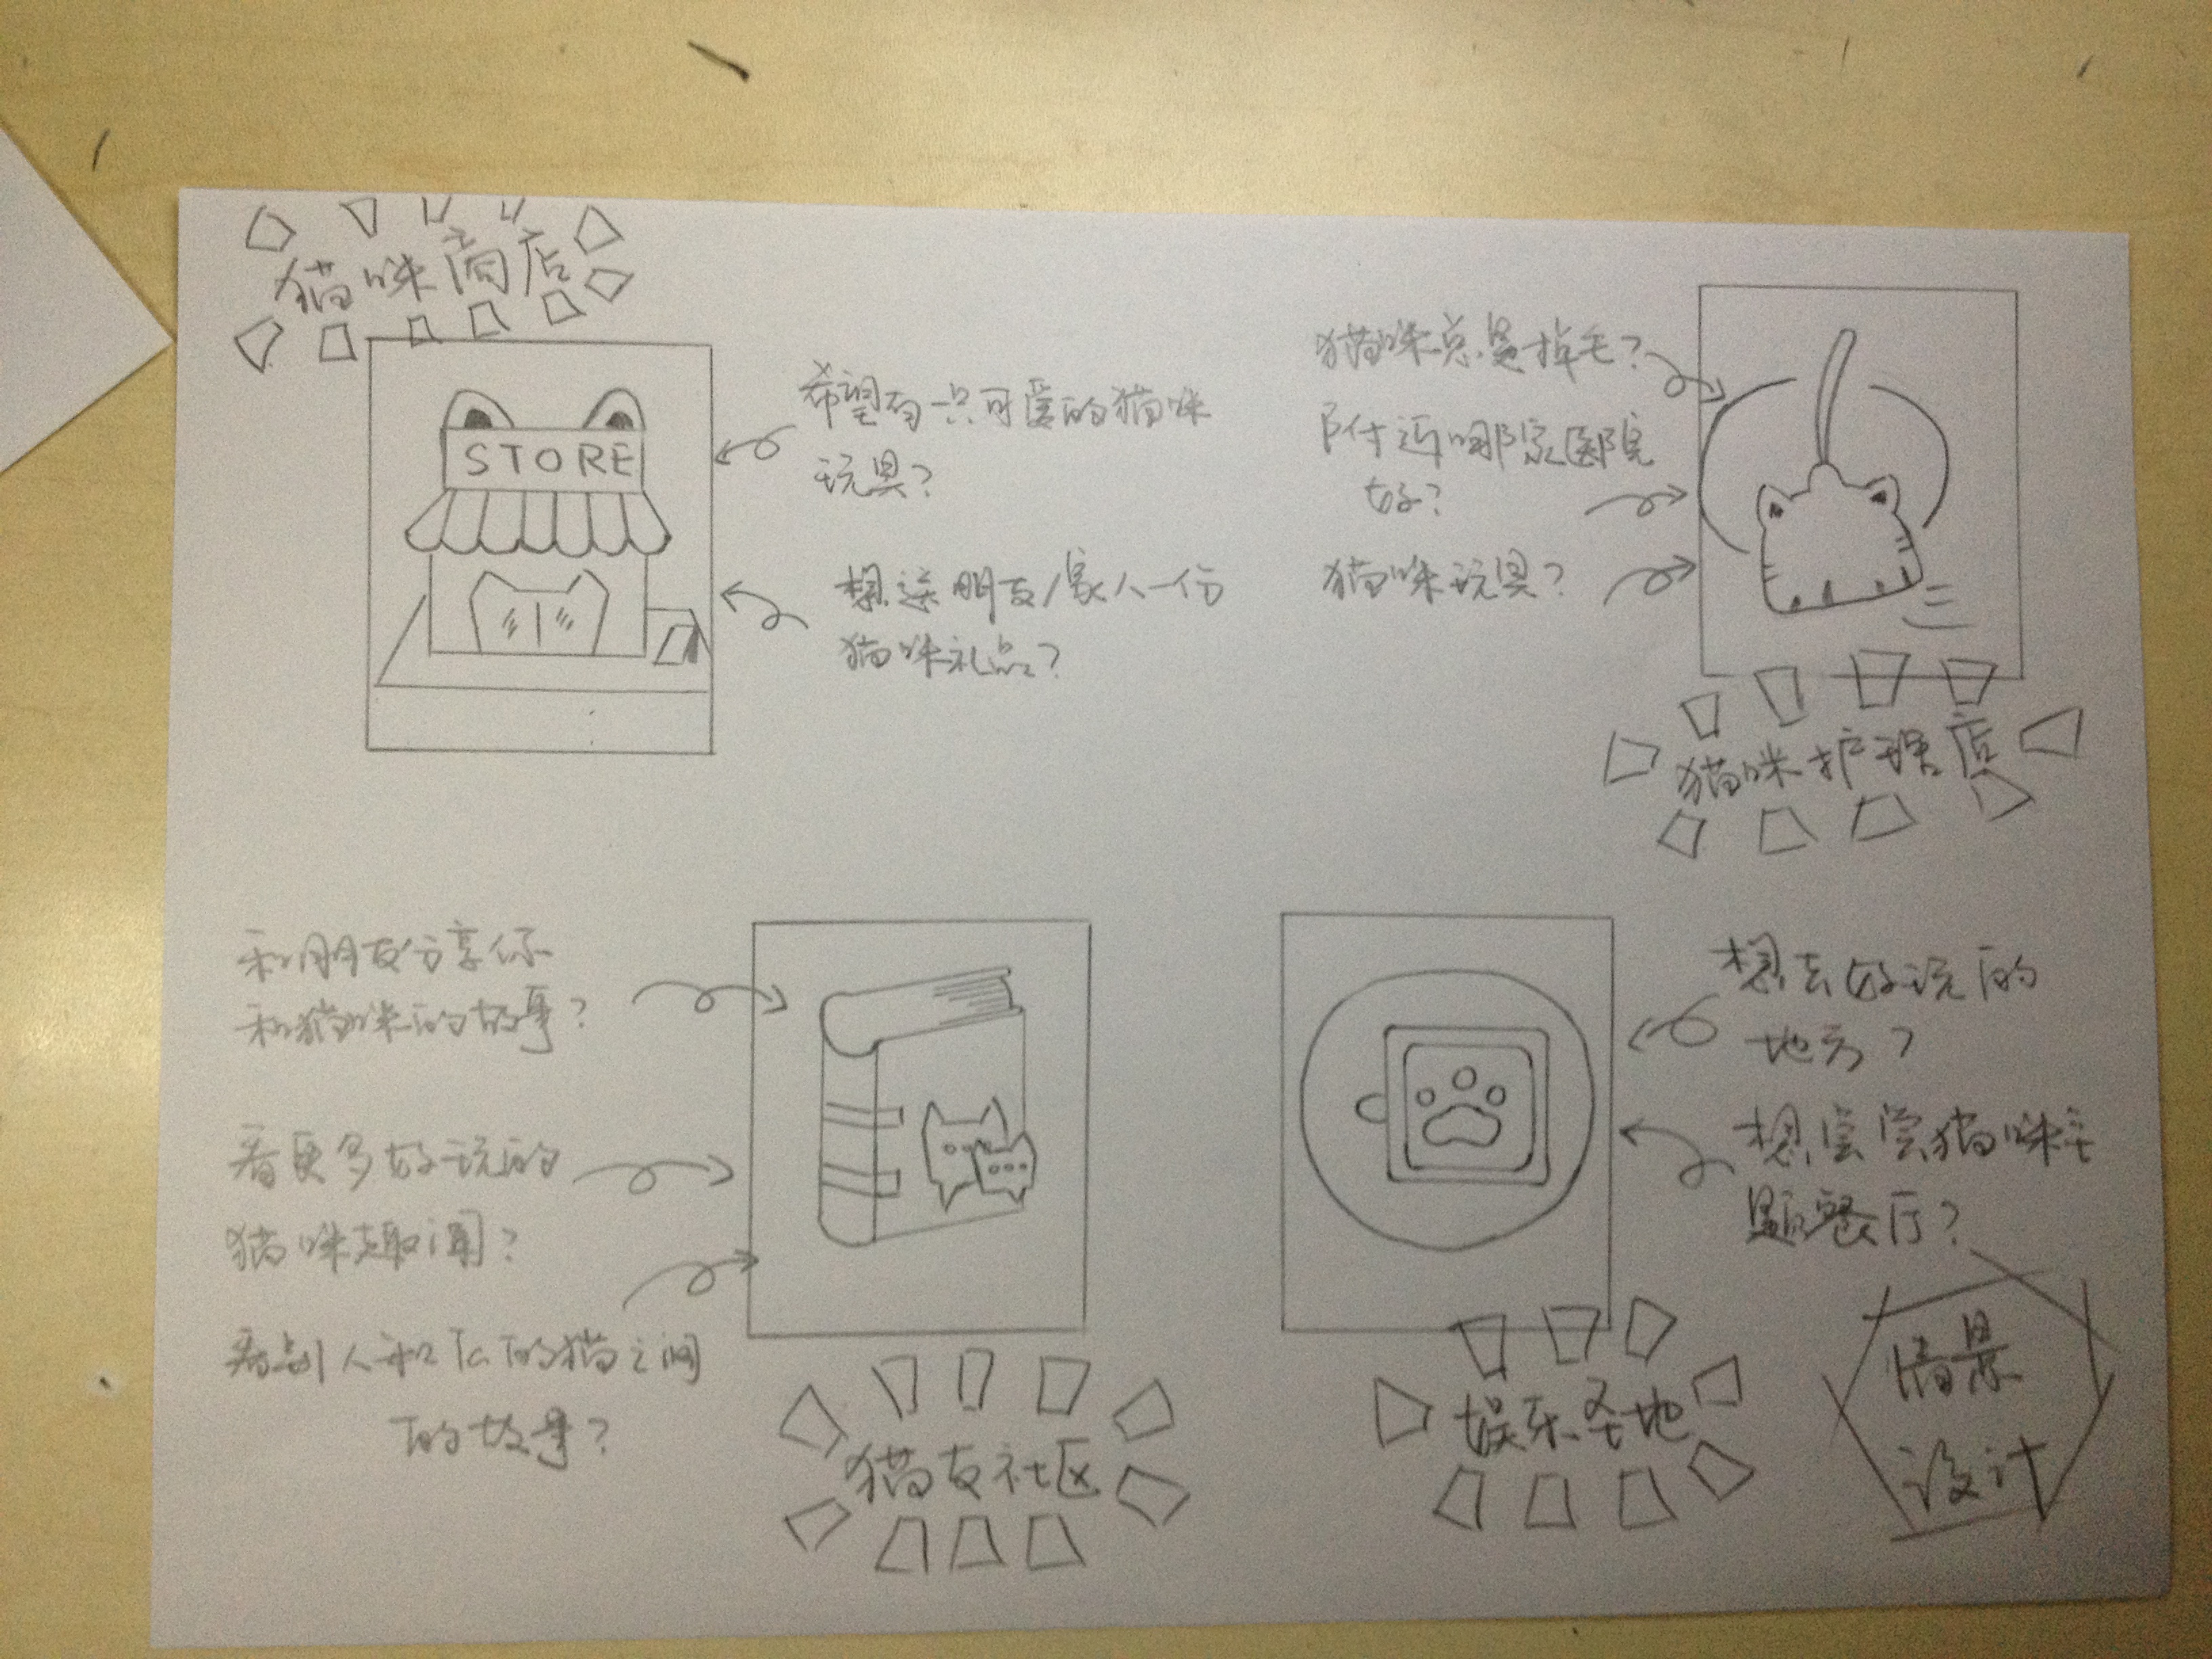 猫咪商店
STORE
希望有一只可爱的猫咪
玩具?
想送朋友/家人一份
猫咪礼品?
猫咪总是掉毛?
附近哪家医院
好?
猫咪玩具?
猫咪护理店
和朋友分享你
和猫咪的故事?
看更多好玩的
猫咪趣闻?
看别人和TA的猫之间
的故事?
猫友社区
想去好玩的
地方?
想尝尝猫咪主
题餐厅?
娱乐圣地
情景
设计